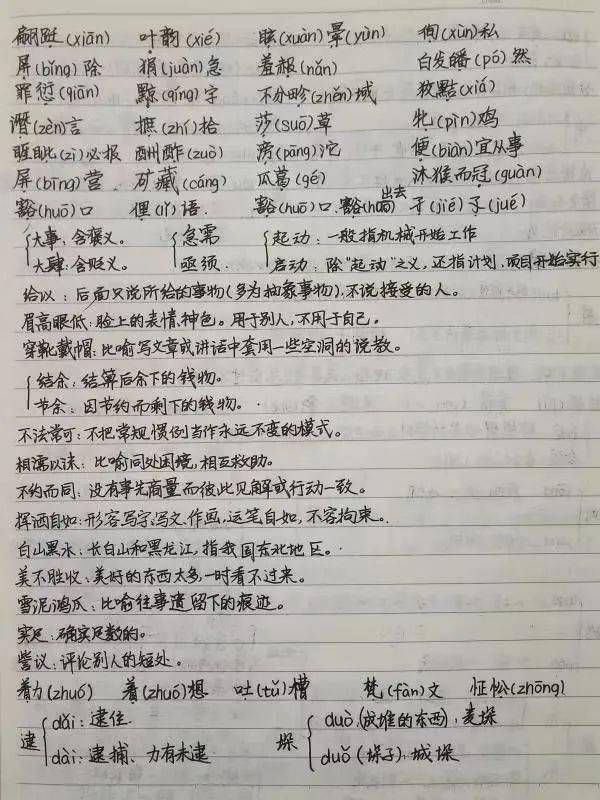 翩跹(xiān) 叶韵(xié) 眩(xuàn)晕(yùn) 徇(xùn)私
屏(bǐng)除 狷(juàn)急 羞赧(nǎn) 白发皤(pó)然
罪愆(qiān) 黥(qíng)字 不分畛(zhěn)域 狡黠(xiá)
谮(zèn)言 摭(zhí)拾 莎(suō)草 牝(pìn)鸡
睚眦(zì)必报 酬酢(zuò) 滂(pāng)沱 便(biàn)宜从事
屏(bīng)营 矿藏(cáng) 瓜葛(gé) 沐猴而冠(guàn)
豁(huō)口 俚(lǐ)语. 豁(huō)口. 豁(huō)出去 孑(jié)孓(jué)
大事:含褒义。 急需 起动:一般指机械开始工作
大肆:含贬义。 亟须. 启动:除“起动”之义,还指计划、项目开始实行
给以:后面只说所给的事物(多为抽象事物),不说接受的人。
眉高眼低:脸上的表情、神色。用于别人,不用于自己。
穿靴戴帽:比喻写文章或讲话中套用一些空洞的说教。
结余:结算后余下的钱物。
节余:因节约而剩下的钱物。
不法常可:不把常规、惯例当作永远不变的模式。
相濡以沫:比喻同处困境,相互救助。
不约而同:没有事先商量而彼此见解或行动一致。
挥洒自如:形容写字、写文、作画,运笔自如,不容拘束。
白山黑水:长白山和黑龙江,指我国东北地区。
美不胜收:美好的东西太多,一时看不过来。
雪泥鸿爪:比喻往事遗留下的痕迹。
实足:确实足数的。
訾议:评论别人的短处。
着力(zhuó) 着(zhuó)想 吐(tǔ)槽 梵(fàn)文 怔忪(zhōng)
逮 dǎi:逮住. 垛 duò:(成堆的东西),麦垛
dài:逮捕、力有未逮 duǒ(垛子):城垛